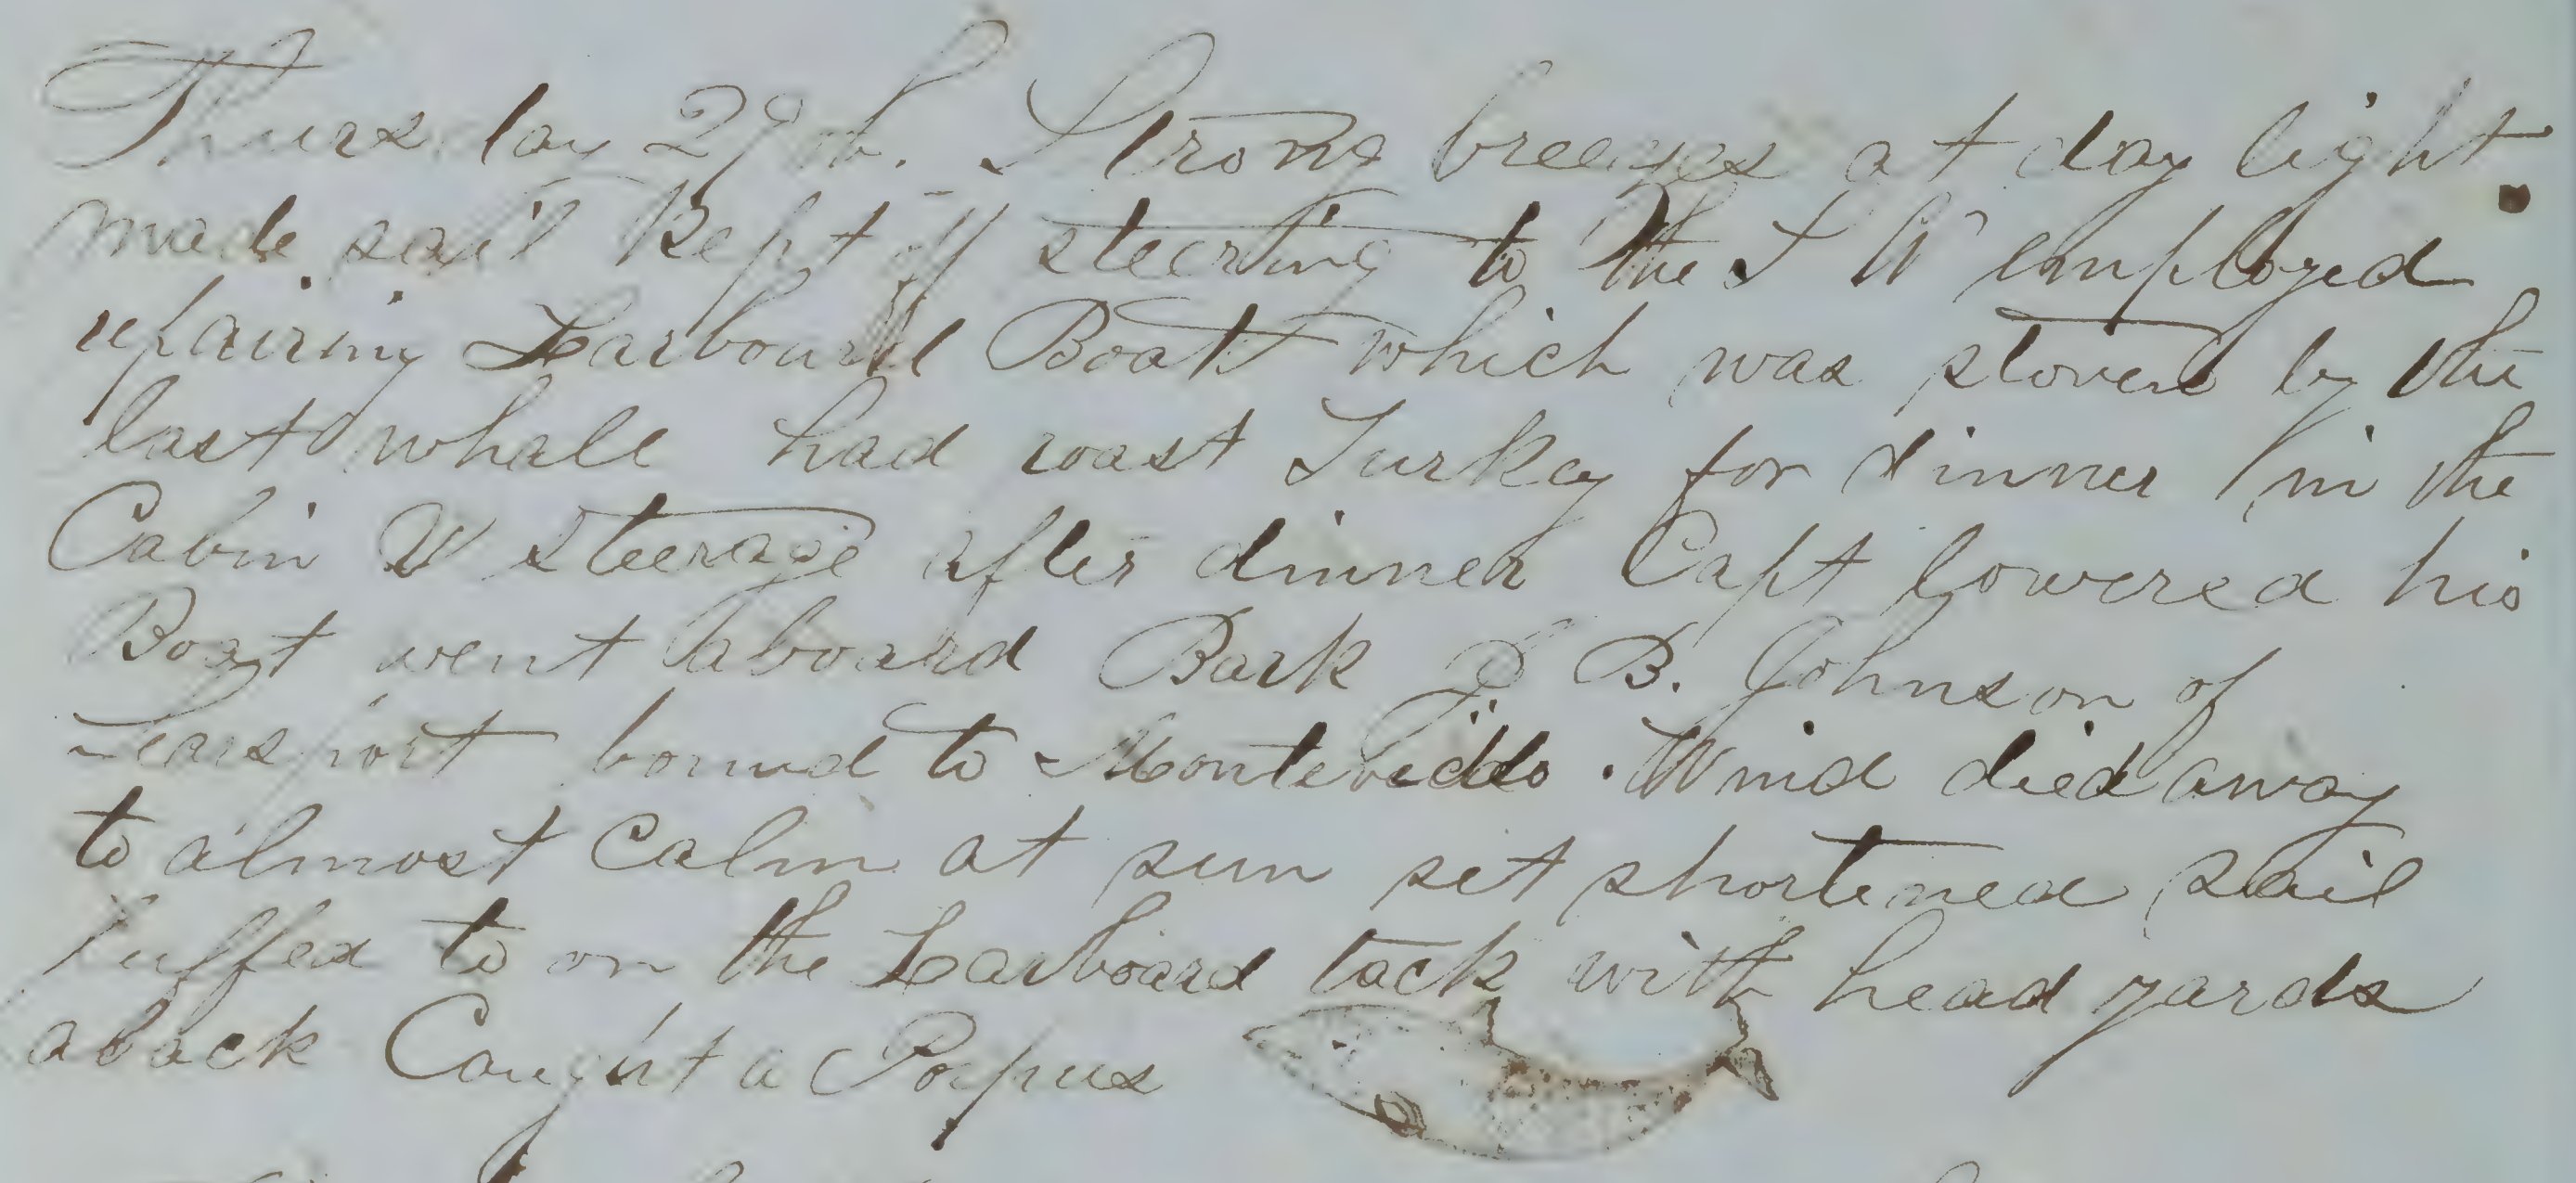 Thursday 29th. Strong breezes at day light
made sail Kept off steering to the S W employed
repairing Larbourd Boat which was stoven by the
last whale had roast Turkey for dinner in the
Cabin & steerage after dinner Capt lowered his
Boat went aboard Bark B. Johnson of
Searsport bound to Montevideo. Wind died away
to almost Calm at sun set shortened sail
luffed to on the Larboard tack with head yards
aback Caught a Porpus